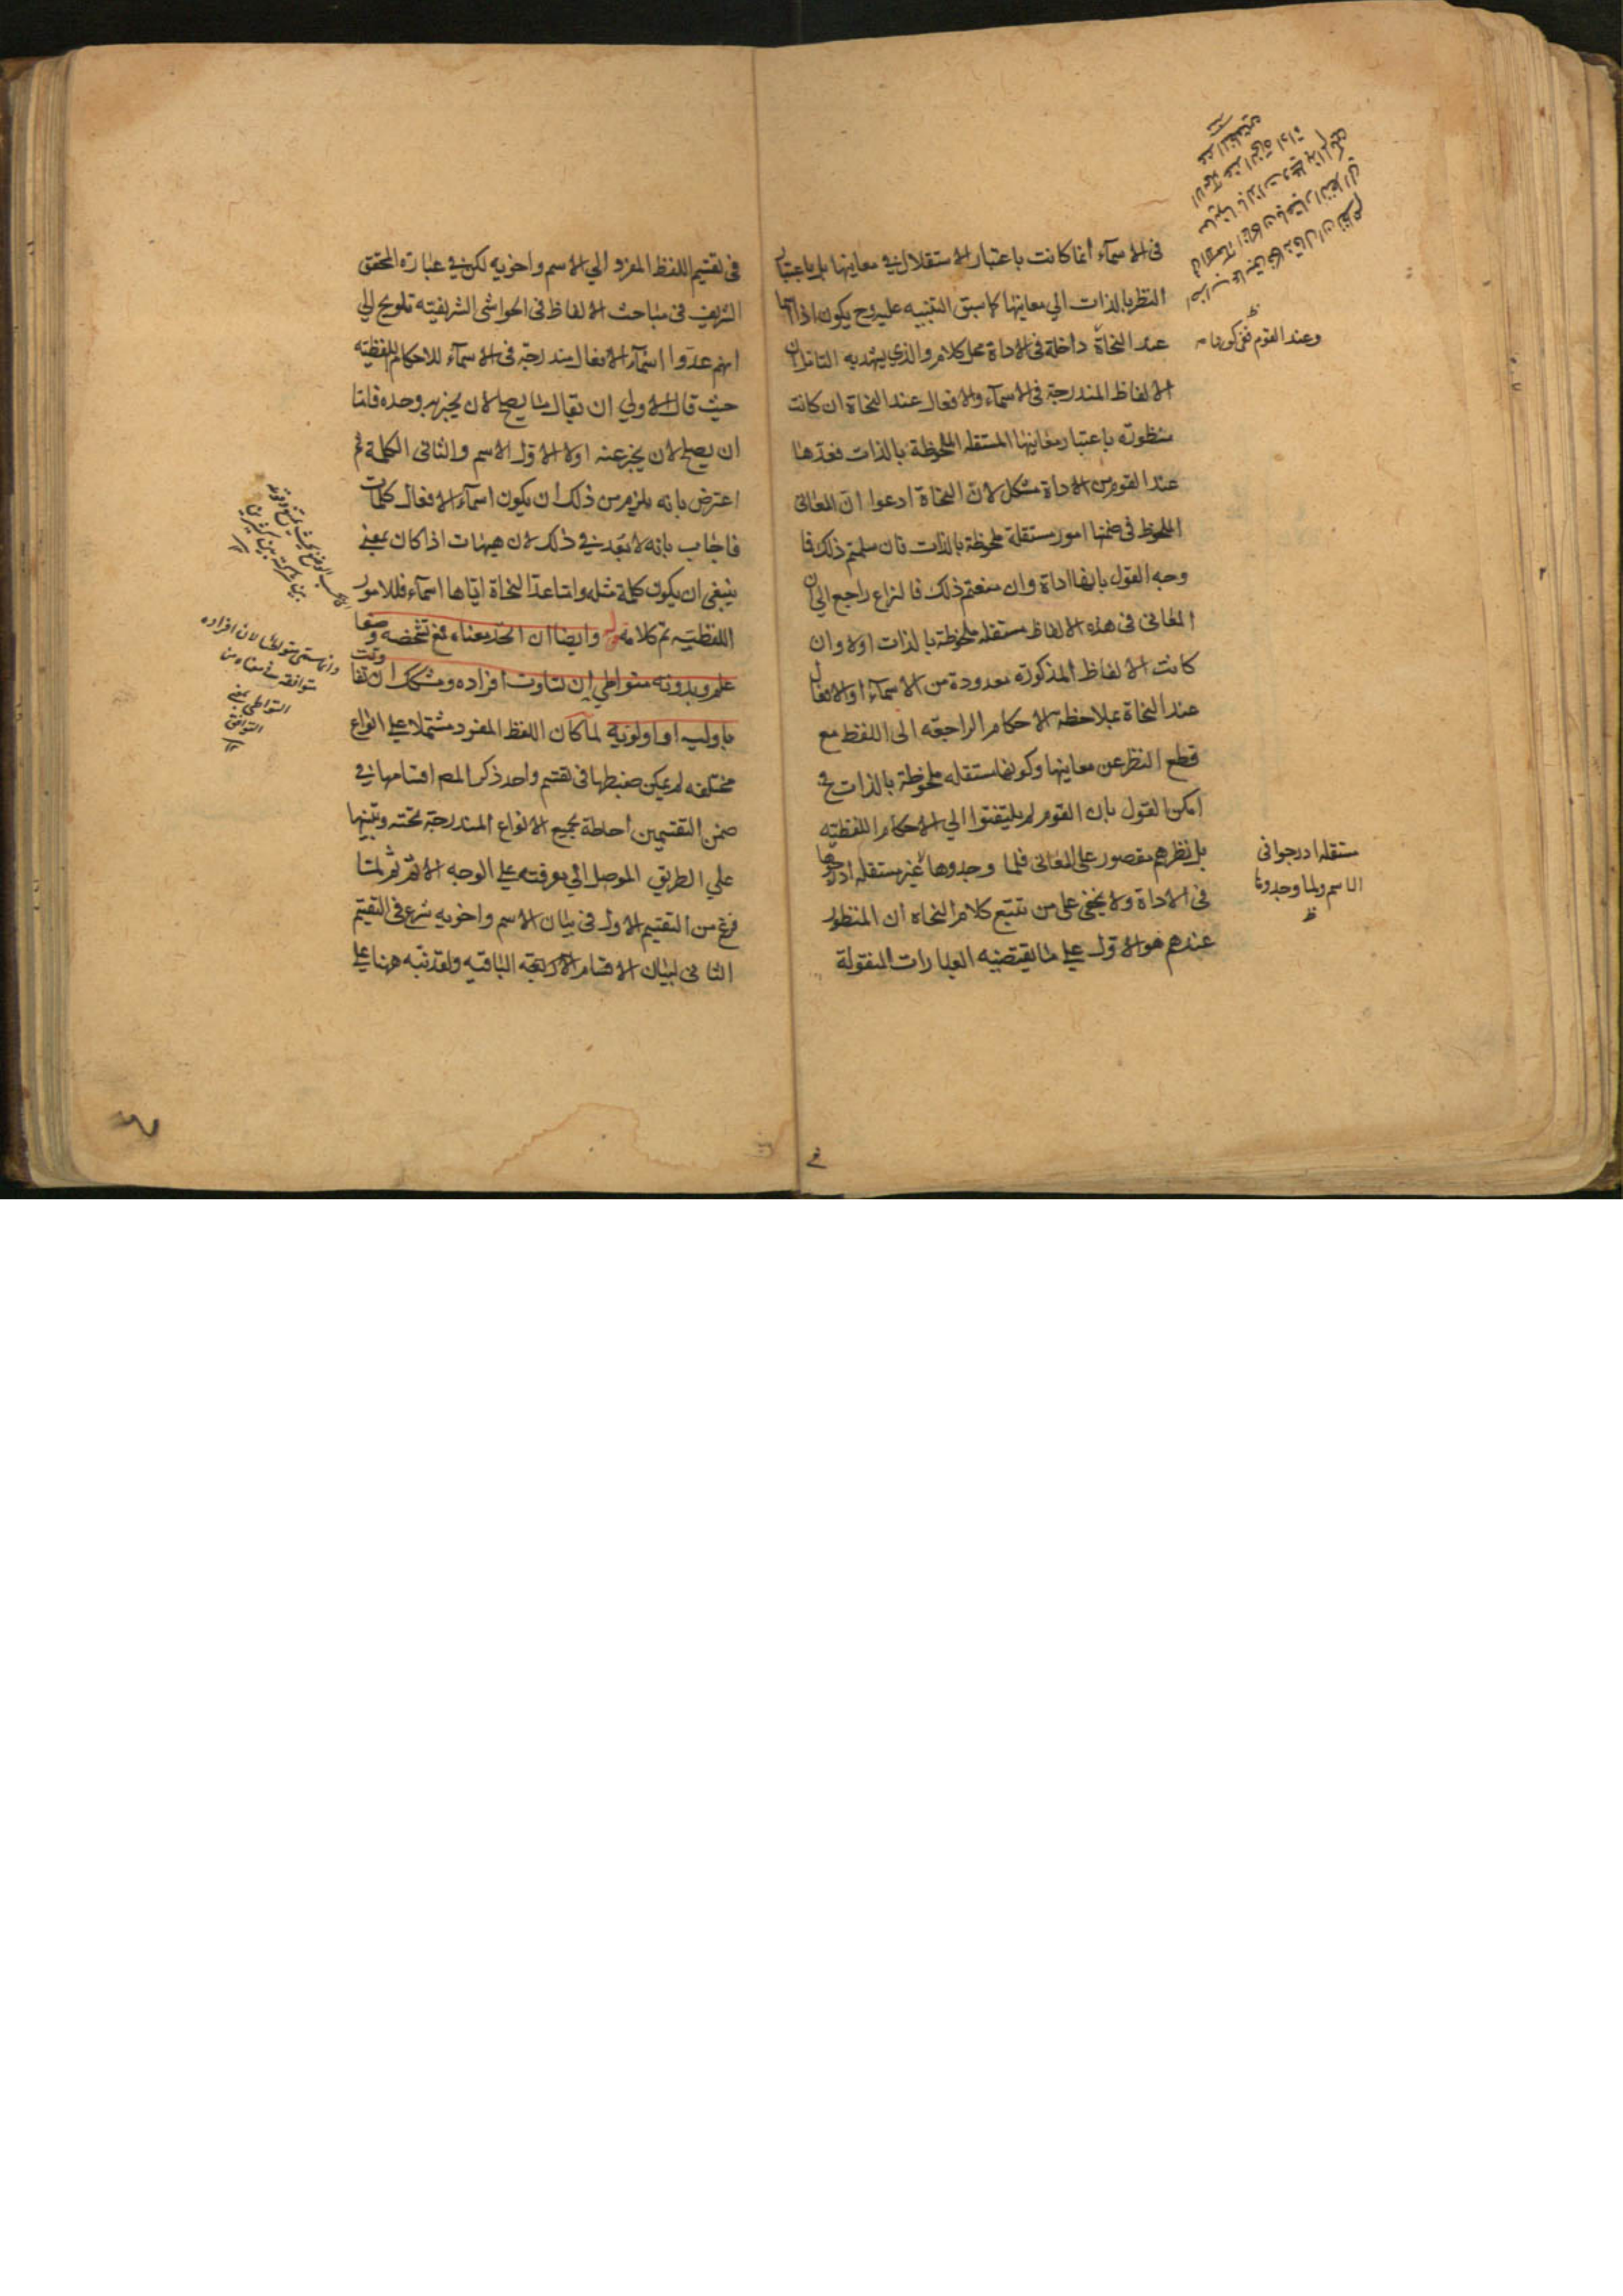 فى الاسماء انما كانت باعتبار الاستقلال في معاينها بل باعتبار
النظر بالذات الي معاينها كما سبق التنبيه عليه وح يكون اذا
عند النحاة داخلة فى الاداة محل كلام والذي يهتدى به التامل ان
الالفاظ المندرجة فى الاسماء والافعال عند النحاة ان كانت
منظورة باعتبار معاينها المستقله الملحوظة بالذات فعدها
عند القوم من الاداة مشكل لان النحاة ادعوا ان المعانى
الملحوظ فى ضمنها امور مستقلة ملحوظة بالذات فان سلمتم ذلك فما
وجه القول بانها اداة وان منعتم ذلك فالنزاع راجع الي ان
المعانى فى هذه الالفاظ مستقله ملحوظة بالذات اولا وان
كانت الالفاظ المذكورة معدودة من الاسماء او الافعال
عند النحاة بملاحظة الاحكام الراجعة الى اللفظ مع
قطع النظر عن معاينها وكونها مستقله ملحوظة بالذات ح
امكن القول بان القوم لم يلتفتوا الي الاحكام اللفظيه
بل نظرهم مقصور على المعانى فلما وجدوها غير مستقله ادرجوها
فى الاداة ولا يخفى على من تتبع كلام النحاه ان المنظور
عندهم هو الاول علي ما يقتضيه العبارات المنقولة
وعند القوم
مستقله ادرجوا فى
الاسم ولما وجدوها
ظ
فى تقسيم اللفظ المفرد الي الاسم واخويه لكن في عبارة المحقق
الشريف فى مباحث الالفاظ فى الحواشى الشريفيه تلويح الي
انهم عدوا اسماء الافعال مندرجة فى الاسماء للاحكام اللفظيه
حيث قال الاولي ان يقال ما يصلح لان يخبر به وحده فاما
ان يصلح لان يخبر عنه اولا الاول الاسم والثانى الكلمة ثم
اعترض بانه يلزم من ذلك ان يكون اسماء الافعال كلمات
فاجاب بانه لا بعد في ذلك لان هيهات اذا كان بمعنى
ينبغى ان يكون كلمة مثله واما عد النحاة اياها اسماء فللامور
اللفظيه تم كلامه وايضا ان اتحد معناه فمع تشخصه وضعا
علم وبدونه متواطي ان تساوت افراده ومشكك ان تفاوتت
باوليه او اولويه لما كان اللفظ المفرد مشتملا علي انواع
مختلفه لم يمكن ضبطها فى تقسيم واحد ذكر المص اقسامها في
ضمن التقسيمين احاطة بجميع الانواع المندرجة تحته وتنبيها
علي الطريق الموصل الي معرفته علي الوجه الاتم ثم لما
فرغ من التقسيم الاول فى بيان الاسم واخويه شرع فى التقسيم
الثانى لبيان الاقسام الاربعة الباقيه ولقد نبه ههنا علي
وانما سمى متواطئا لان افراده
متوافقة في معناه من
التواطى بمعنى
التوافق
١٢